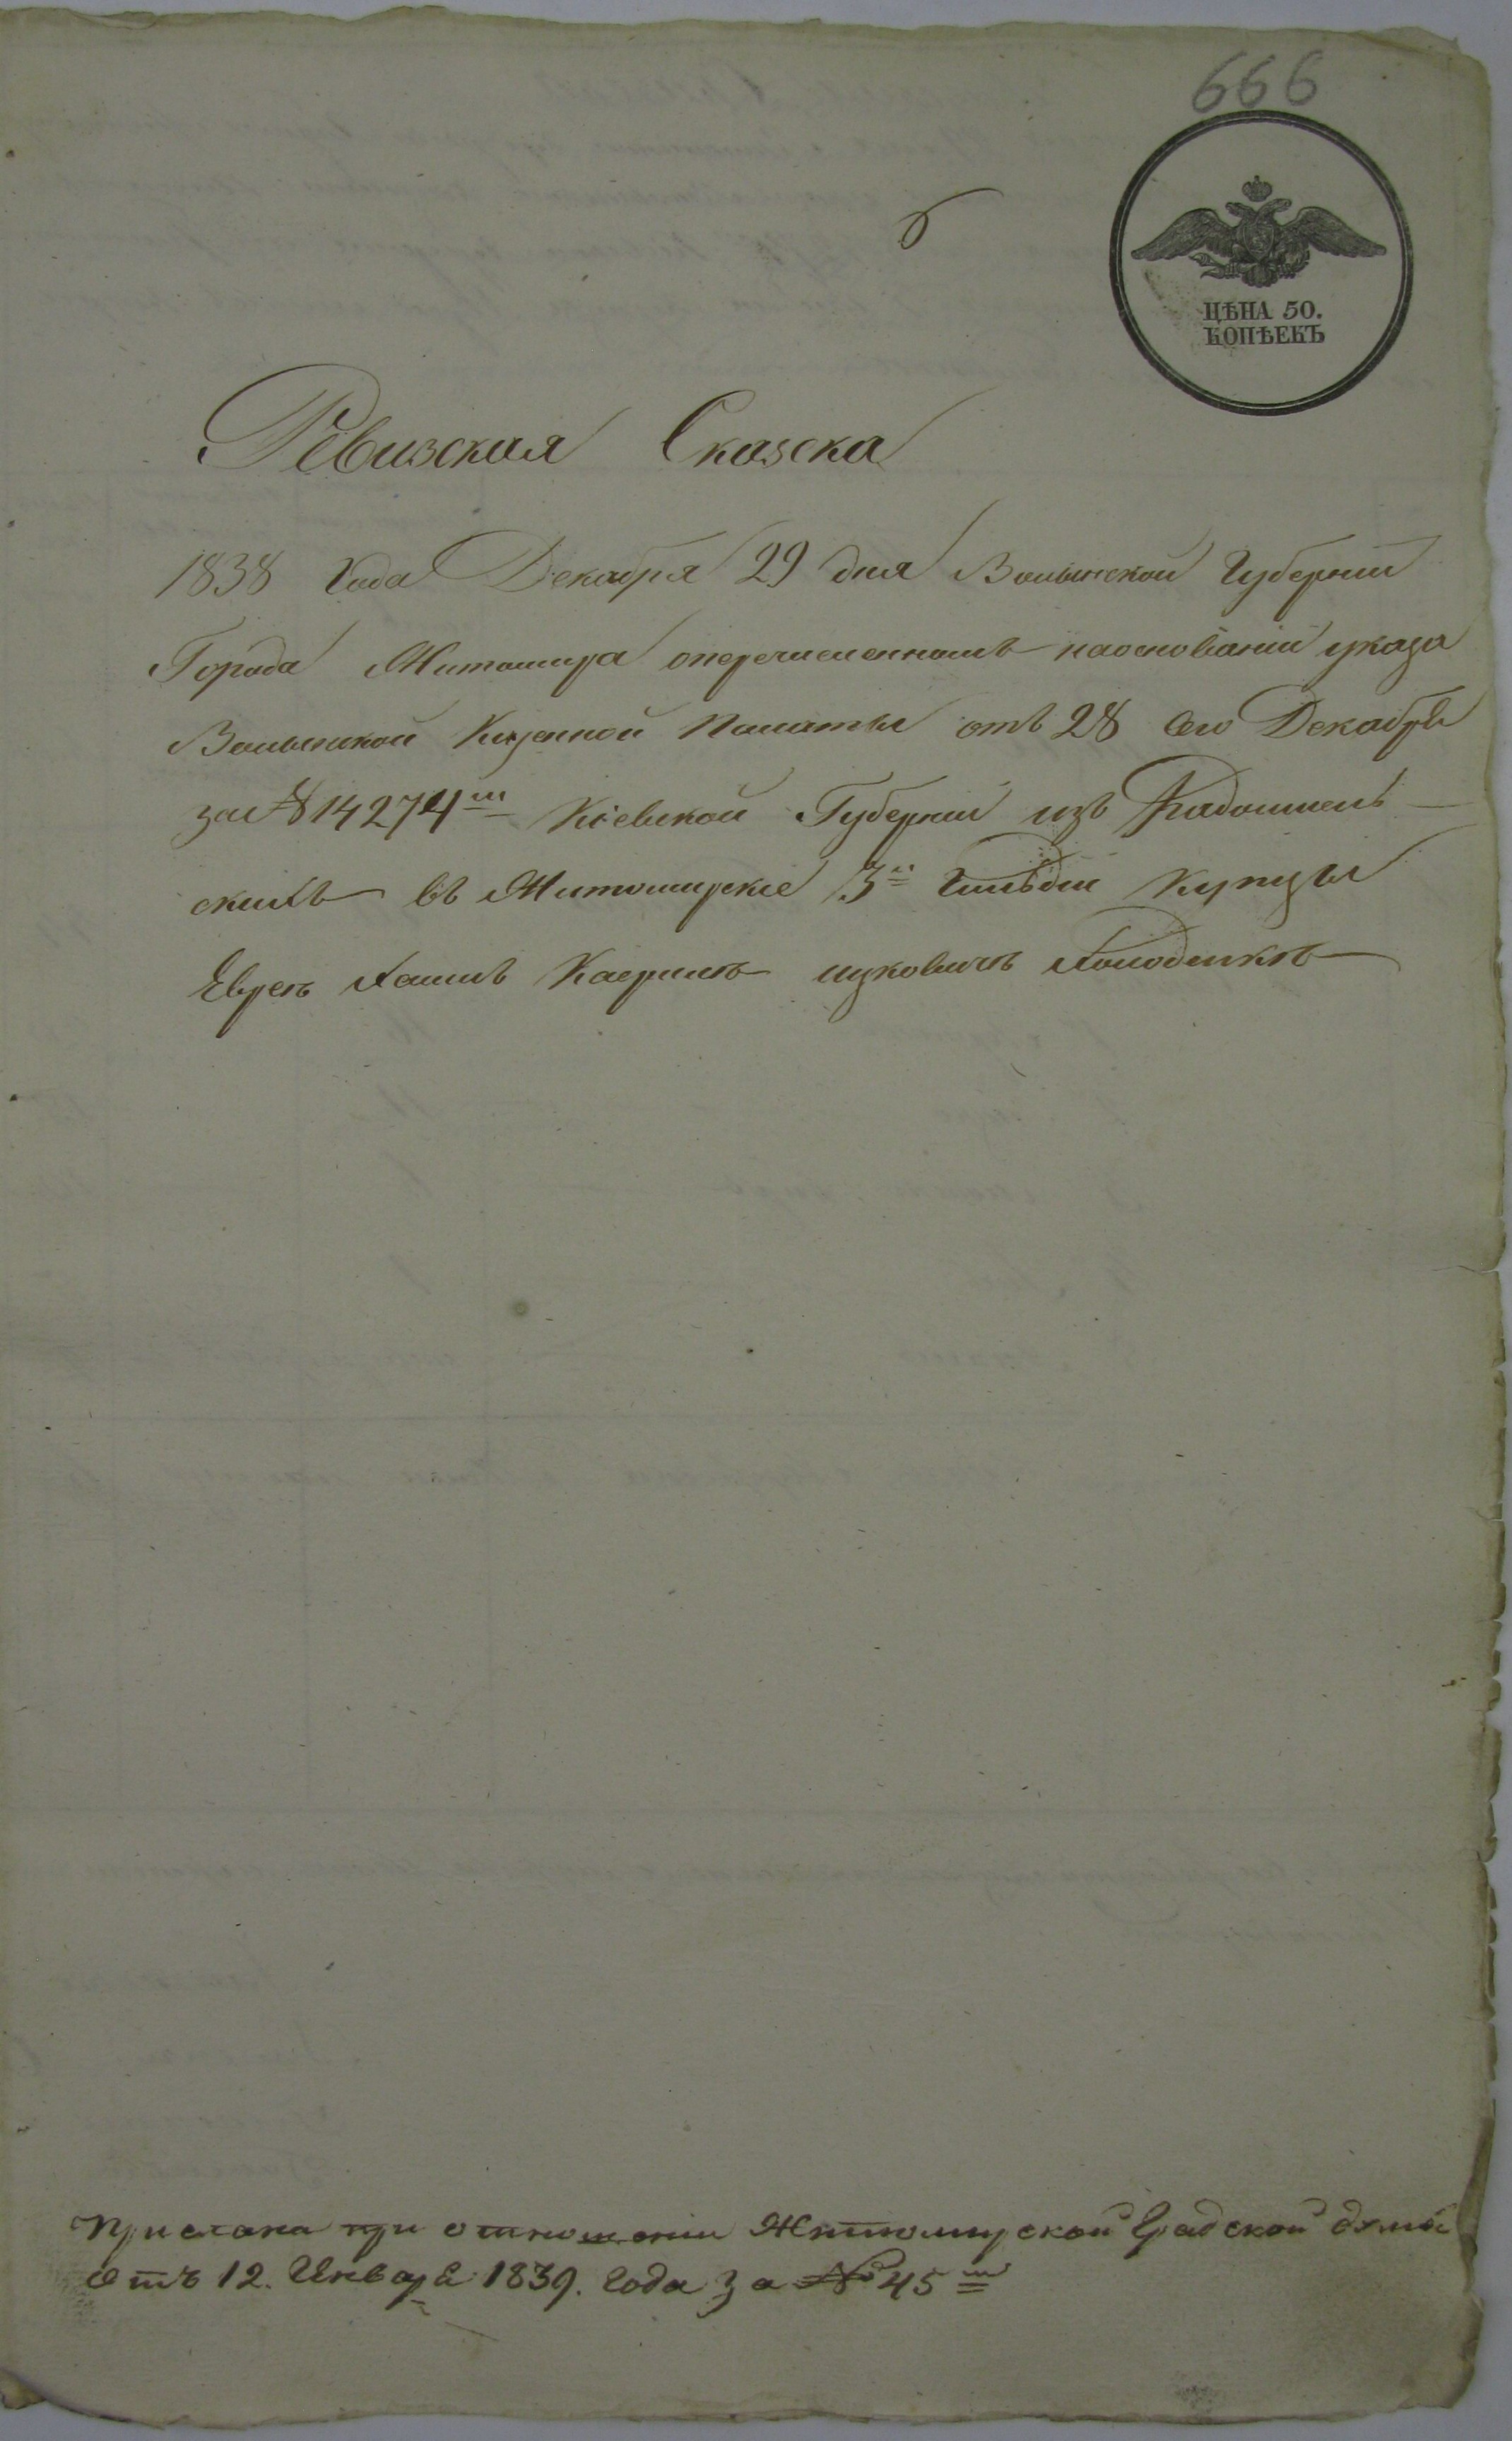 666
6
ЦѢНА 50.
КОПѢЕКЪ
Ревизская Сказска
1838 Года Декабря 29 дня Волынской Губерніи
Города Житомира оперечисленномъ наоснованіи указа
Волынской Казенной Палаты отъ 28 сего Декабря
за № 14274м Кіевской Губерніи изъ Радомыслъ
скихъ въ Житомирские 3й Гильдіи Купцы
Еврей Хаимъ Ицковичъ Холоденкъ
Прислана при отношеніи Житомирской Градской думы
Отъ 12. Января 1839. Года за № 45м